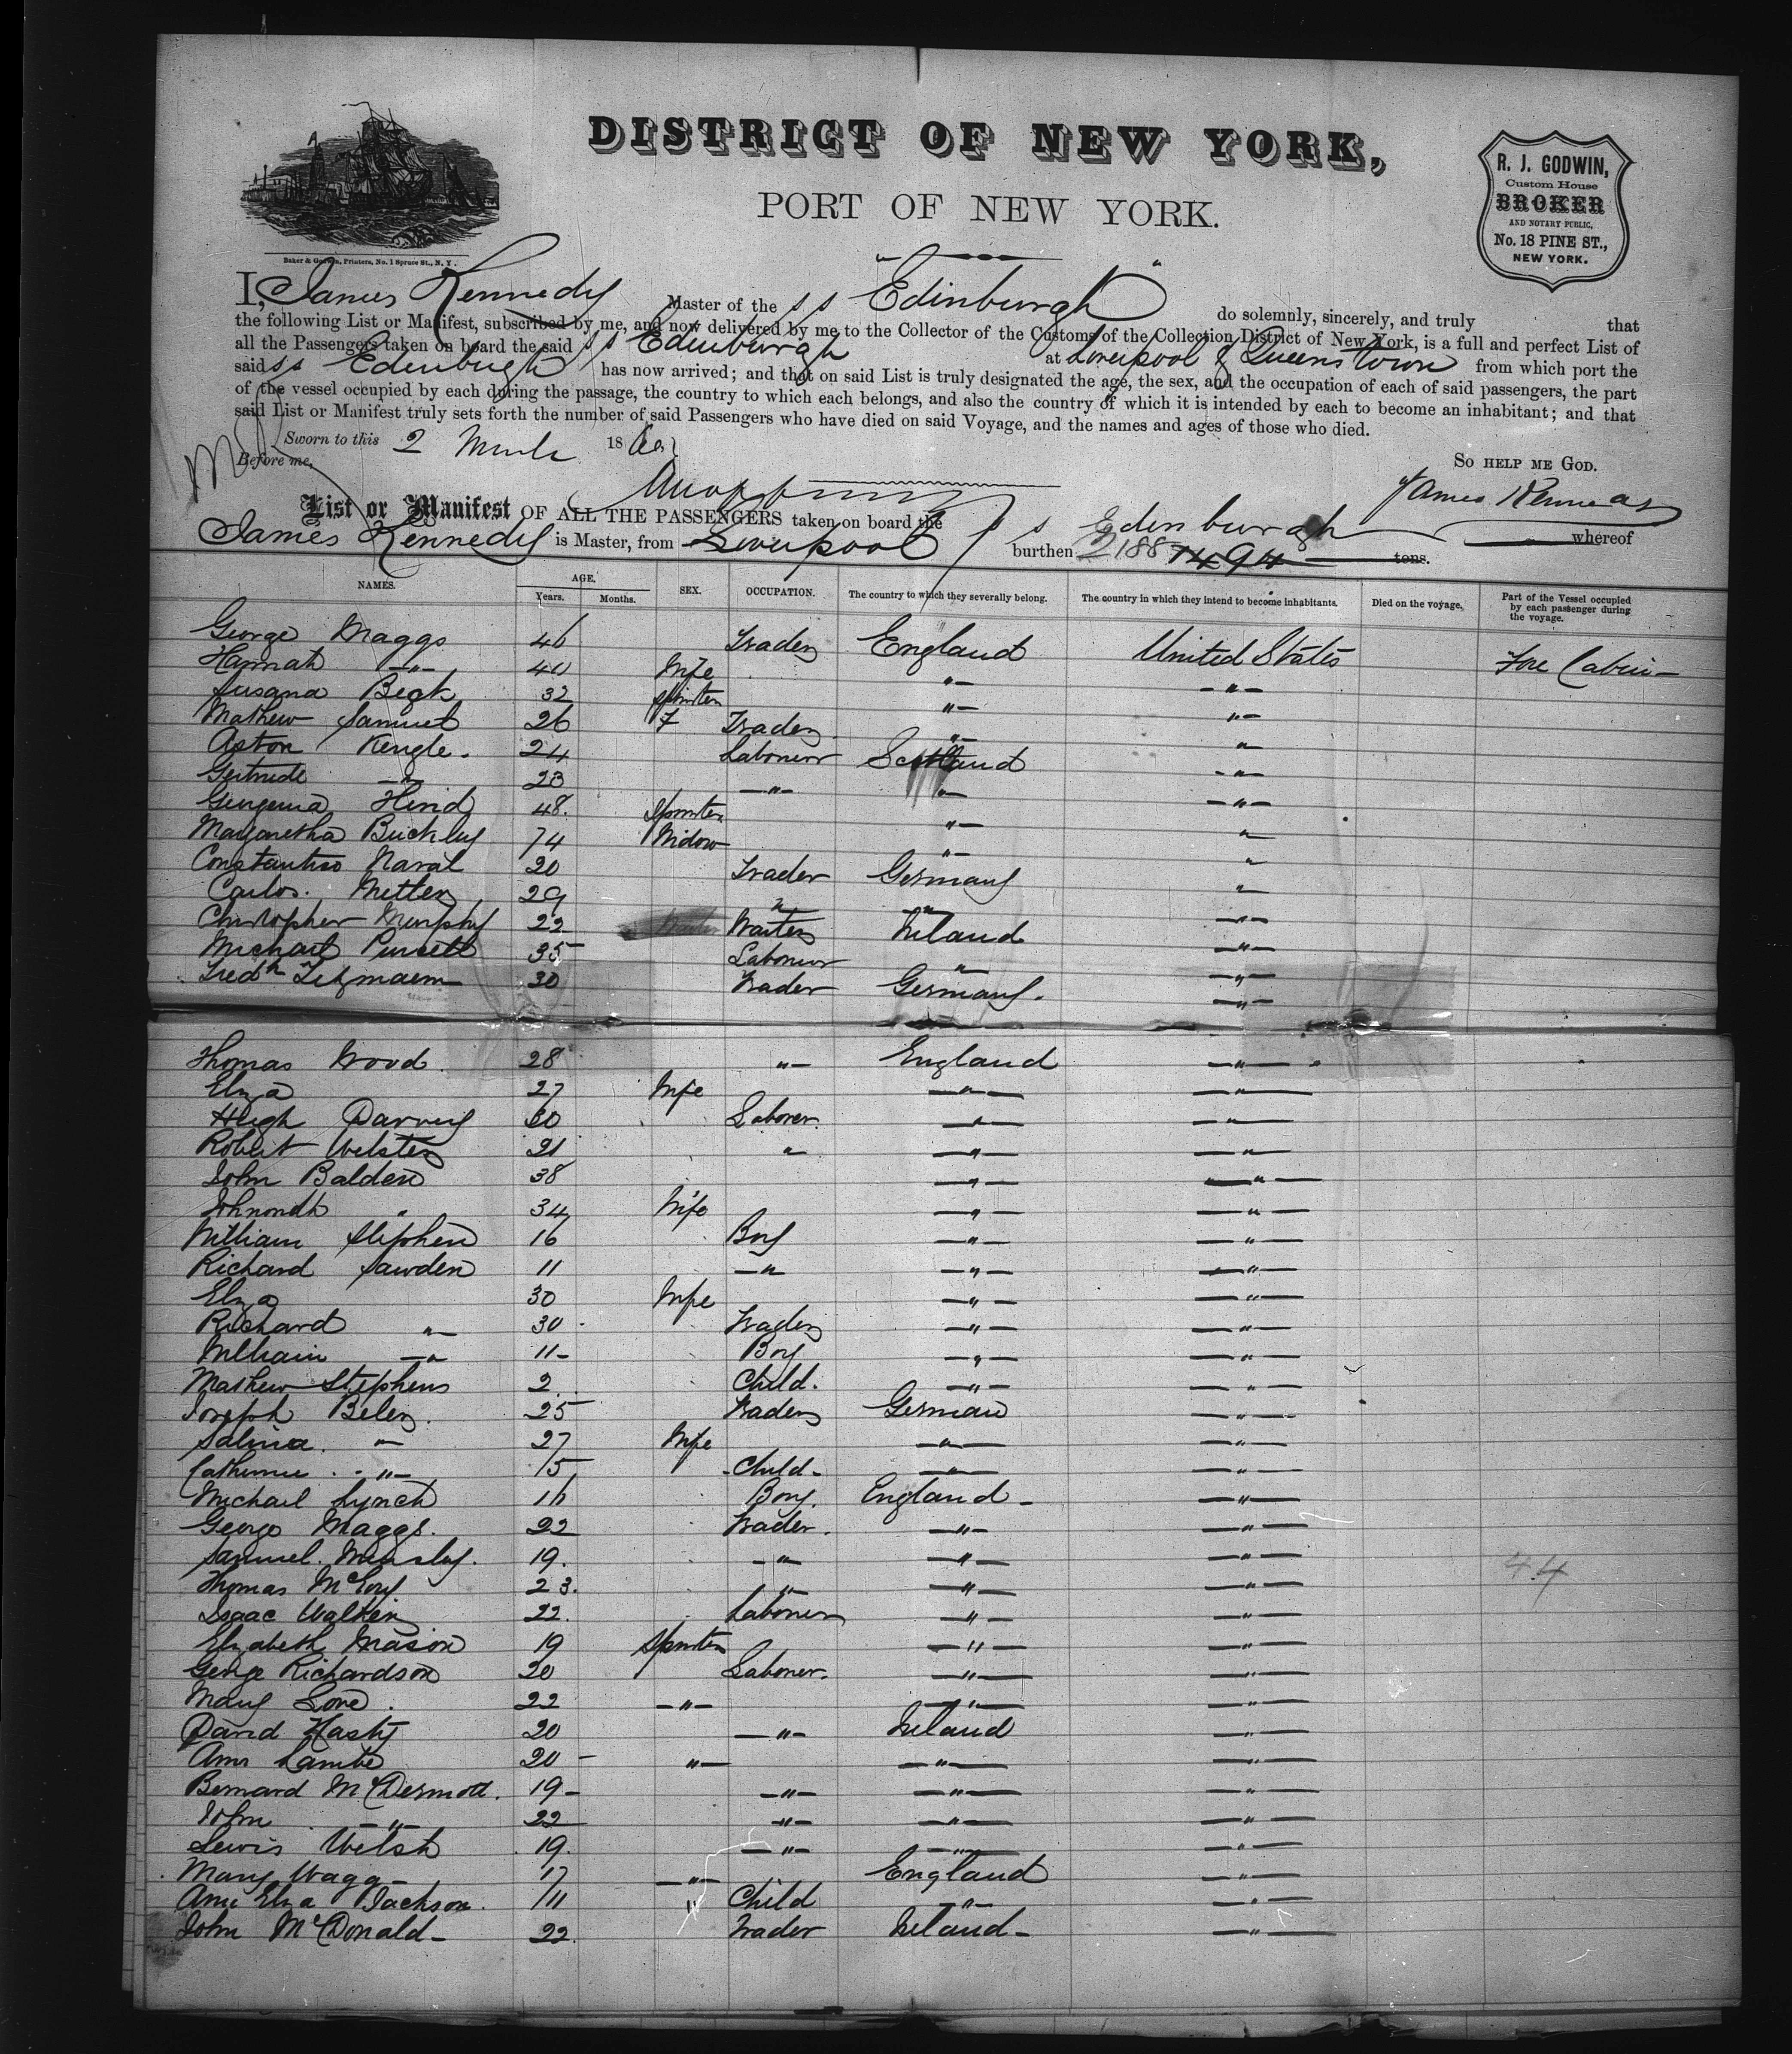 DISTRICT OF NEW YORK,
PORT OF NEW YORK.
R. J. GODWIN,
Custom House
BROKER
AND NOTARY PUBLIC,
No. 18 PINE ST.,
NEW YORK.
Baker & Godwin, Printers, No. 1 Spruce St., N. Y.
I, James Kennedy Master of the s s "Edinburgh" do solemnly, sincerely, and truly that
the following List or Manifest, subscribed by me, and now delivered by me to the Collector of the Customs of the Collection District of New York, is a full and perfect List of
all the Passengers taken on board the said s s Edenburgh at Liverpool & Queenstown from which port the
said ss Edenbugh has now arrived; and that on said List is truly designated the age, the sex, and the occupation of each of said passengers, the part
of the vessel occupied by each during the passage, the country to which each belongs, and also the country of which it is intended by each to become an inhabitant; and that
said List or Manifest truly sets forth the number of said Passengers who have died on said Voyage, and the names and ages of those who died.
Sworn to this 2 March 18
So help me God.
Before me,
James Kennedy
List or Manifest OF ALL THE PASSENGERS taken on board the s s Edinburgh whereof
James Kennedy is Master, from Liverpool burthen 2188 1494 tons.
NAMES. AGE. Years. Months. SEX. OCCUPATION. The country to which they severally belong. The country in which they intend to become inhabitants. Died on the voyage. Part of the Vessel occupied by each passenger during the voyage.
George Maggs 46 Trader England United States Fore Cabin -
Hannah -"- 40 Wife -"- -"-
Susana 32 Spinster -"- "-
Mathew Samuel 26 F Trader "- "
24 Labourer Scotland -"-
Gertrude -"- 23 -"- "- -"-
Hind 48. Spinster -"- "
Margaretha Buckley 74 Widow -"- "
Naval 20 Trader Germany "
Carlos. 29 " " -"-
Christopher Murphy 22 Waiter Ireland -"-
Michael Purcell 35 Labourer " -"-
Fredk 30 Trader Germany. -"-
Thomas Wood. 28 "- England -"-
Eliza 27 Wife -"- -"-
Hugh 60 Laborer. -"- -"-
Robert Webster 21 " -"- -"-
John Balden 38 -"- -"-
" 34 Wife -"- -"-
William Stephen 16 Boy -"- -"-
Richard Sawden 11 -"- -"- -"-
Eliza 30 Wife -"- -"-
Richard "- 30 Trader -"- -"-
William -"- 11- Boy -"- -"-
Mathew Stephens 2 Child. -"- -"-
Joseph 25 Trader German -"-
Salina. "- 27 Wife -"- -"-
Catherine . -"- /5 -Child- -"- -"-
Michael Lynch 16 Boy. England- -"-
George Maggs. 22 Trader. -"- -"-
Samuel 19. -"- -"- -"-
Thomas 23. " -"- -"-
44
Isaac Walker 22. Labourer -"- -"-
Elizabeth Mason 19 Spinster -"- -"-
George Richardson 20 Laborer. -"- -"-
Mary Love. 22 -"- -"- -"-
David Hasty 20 -"- Ireland -"-
Ann Lambe 20- "- -"- -"-
Bernard McDermott. 19- -"- -"- -"-
John -"- 22 -"- -"- -"-
Lewis Welsh 19. -"- -"- -"-
Mary Wagg- 17 -"- England -"-
Ann Eliza Jackson. /11 " Child -"- -"-
John McDonald- 22. Trader Ireland- -"-